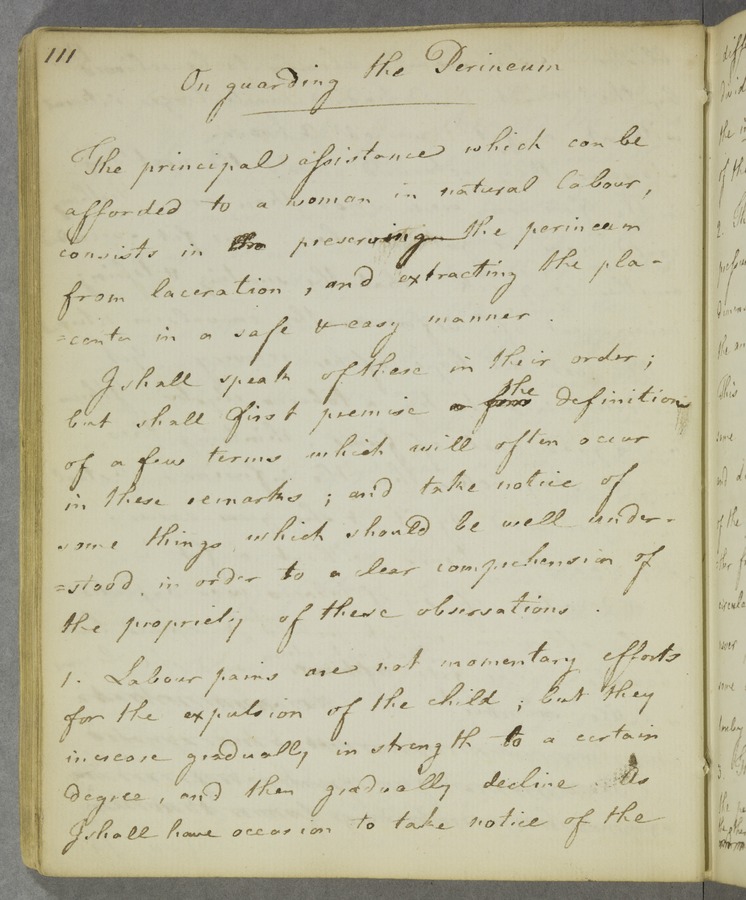 111
On guarding the Perineum
The principal assistance which can be
afforded to a woman in natural labour,
consists in the preserving the perineum
from laceration, and extracting the pla-
=centa in a safe & easy manner.
I shall speak of these in their order;
but shall first premise a the definition
of a few terms which will often occur
in these remarks; and take notice of
some things which should be well under-
=stood, in order to a clear comprehension of
the propriety of these observations.
1. Labour pains are not momentary efforts
for the expulsion of the child; but they
increase gradually in strength to a certain
degree, and then gradually decline. As
I shall have occasion to take notice of the